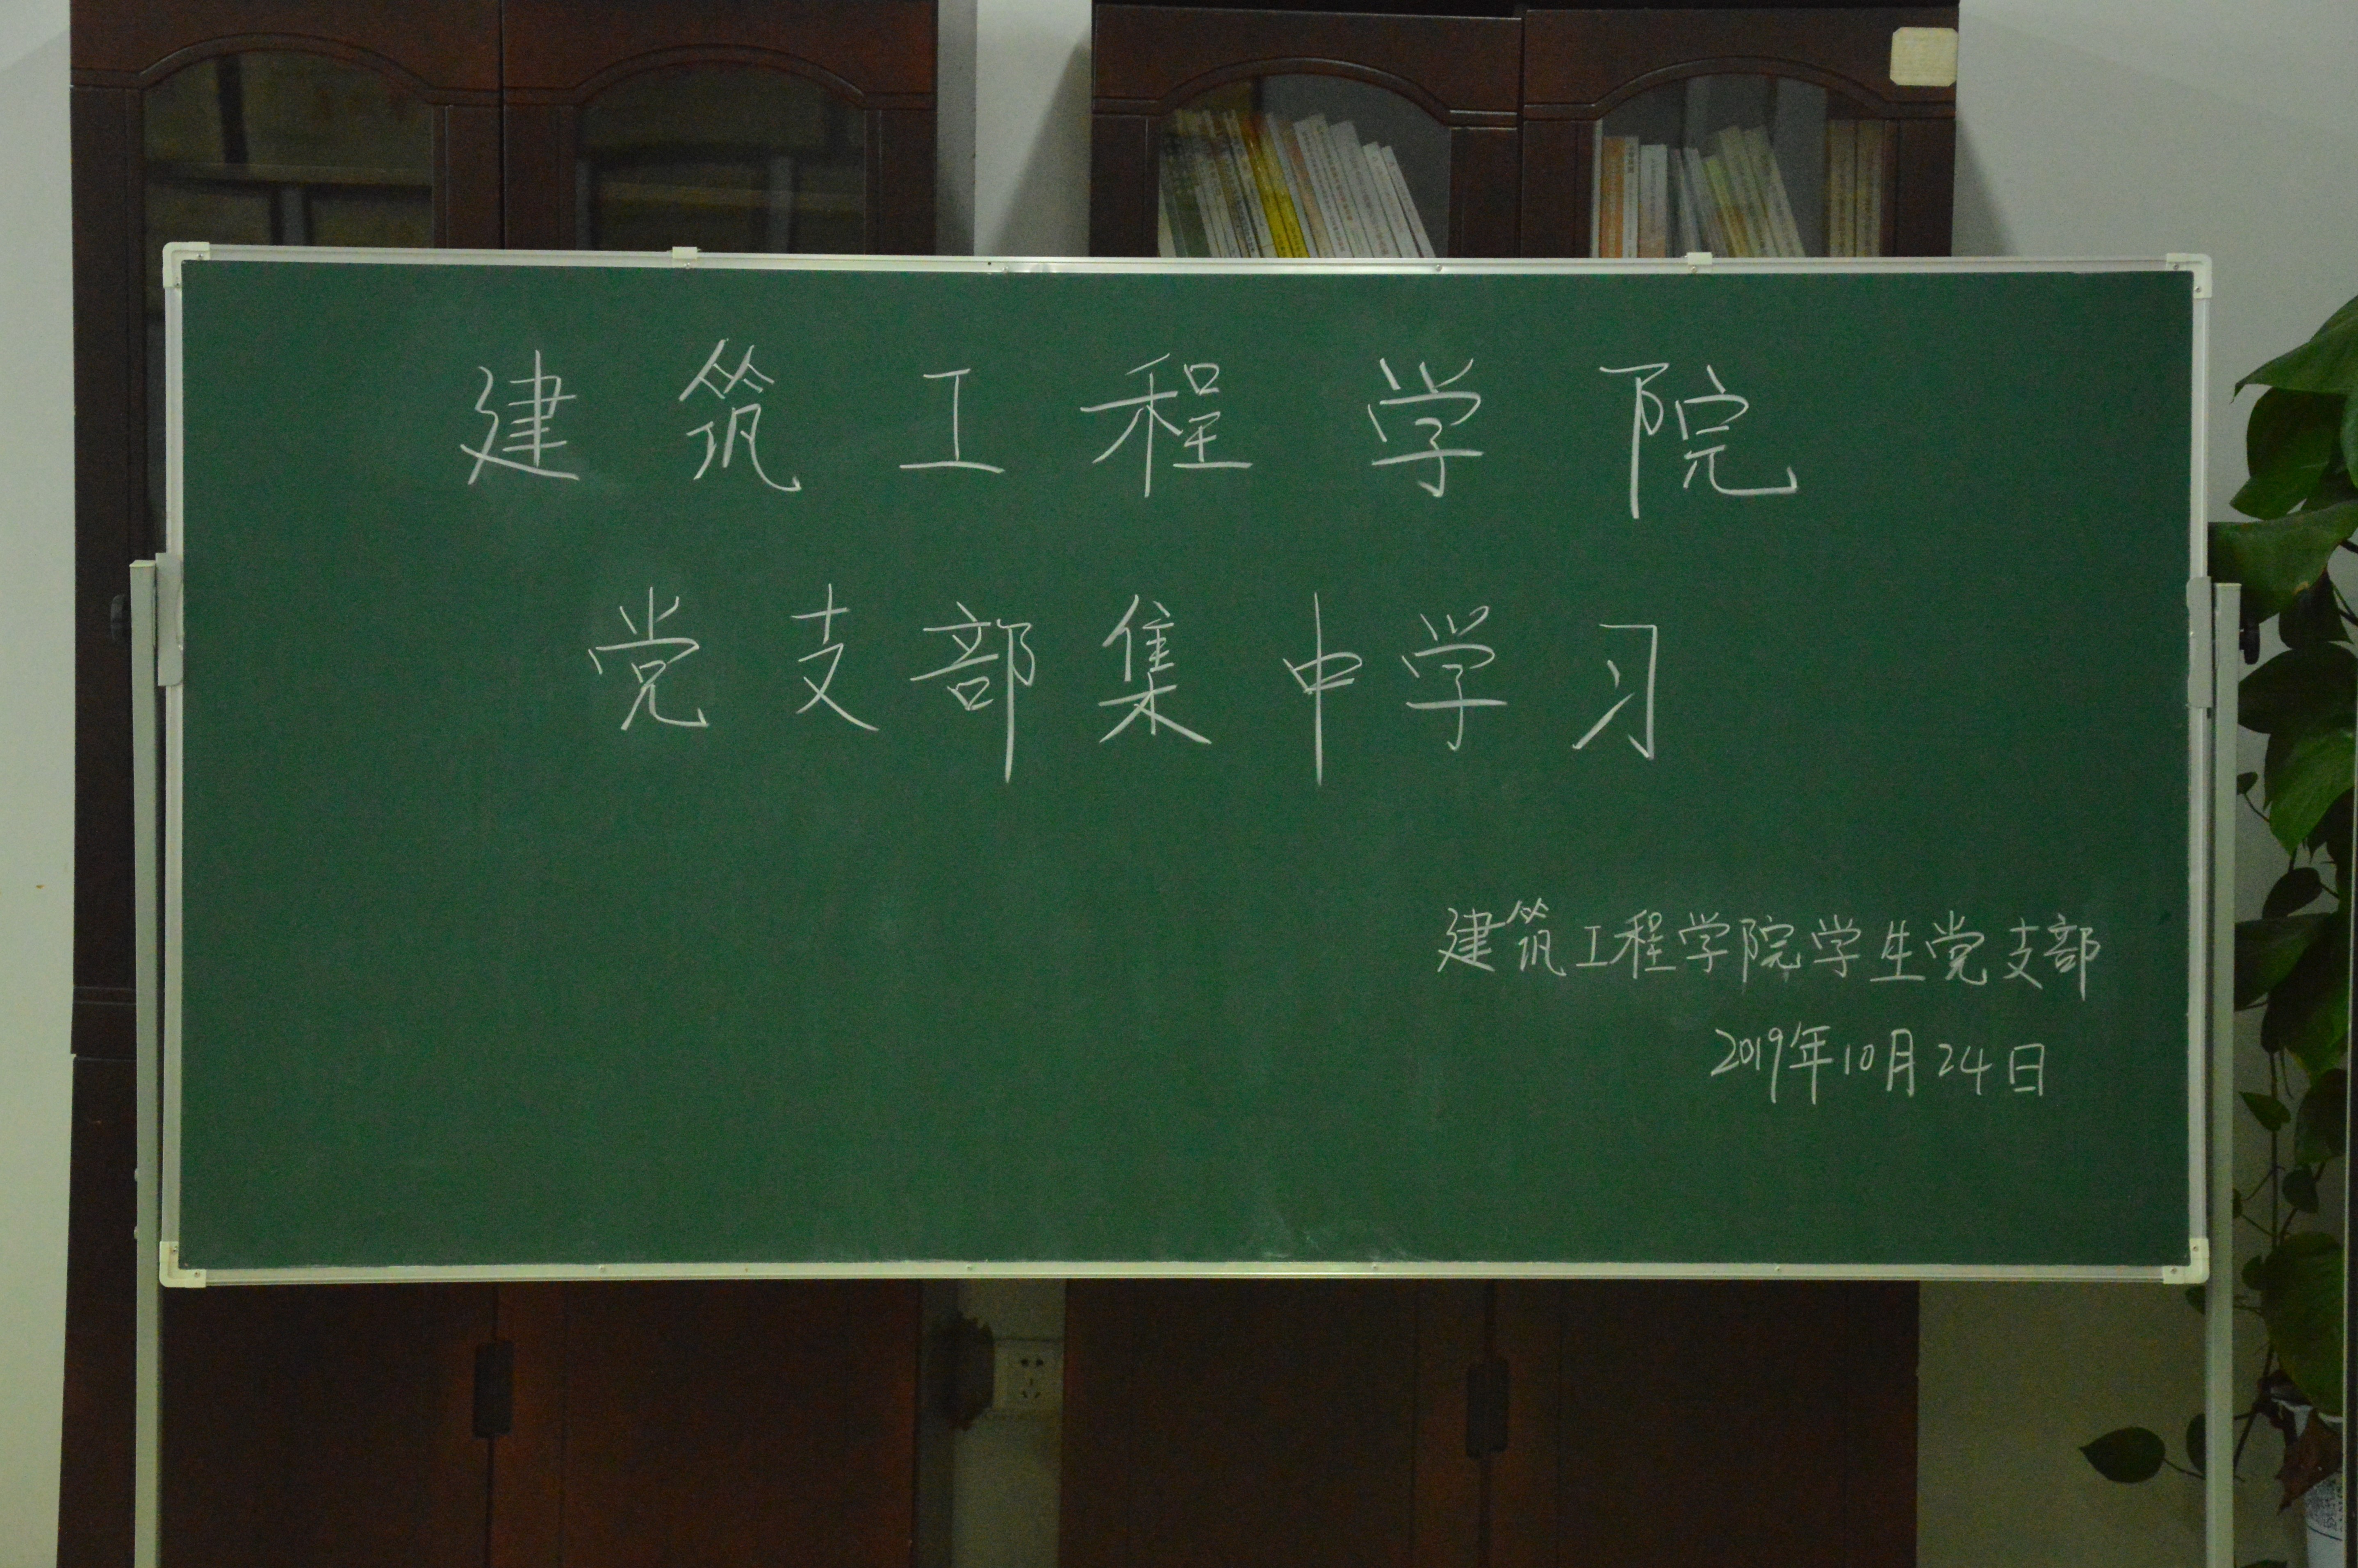 建筑工程学院
党支部集中学习
建筑工程学院学生党支部
2019年10月24日